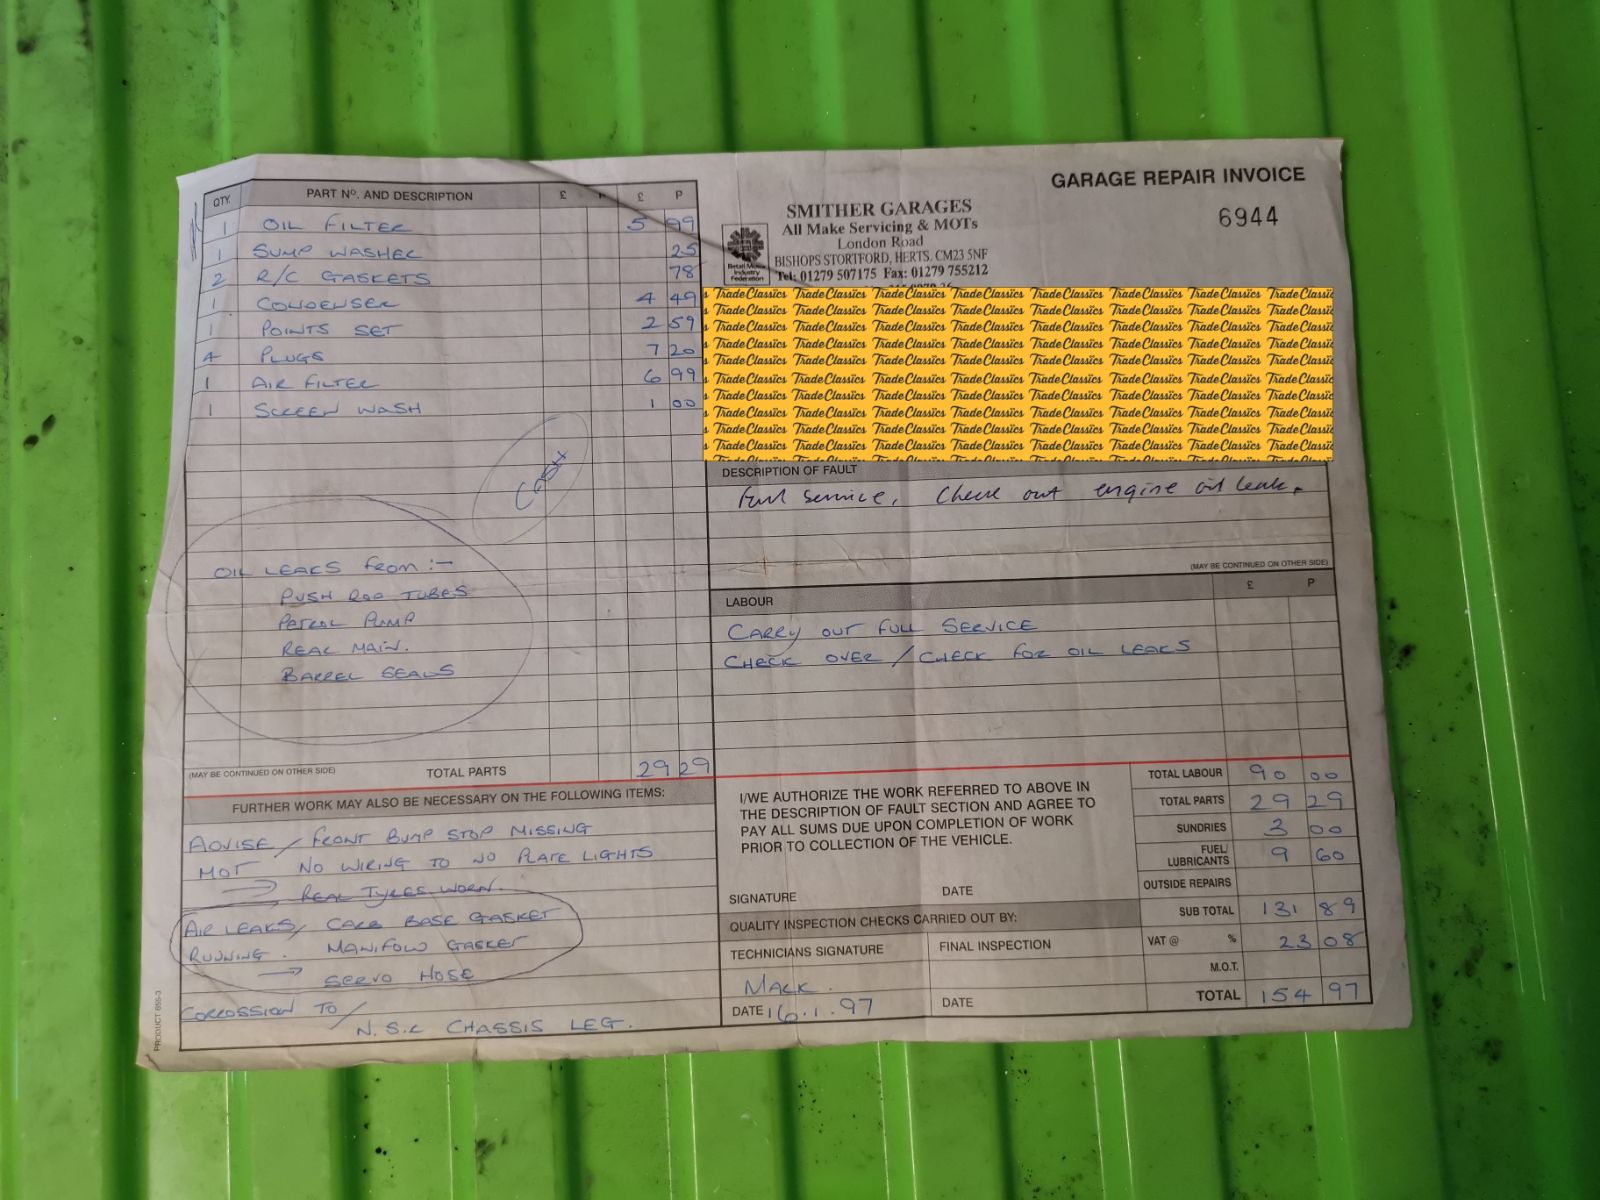 GARAGE REPAIR INVOICE
6944
SMITHER GARAGES
All Make Servicing & MOTs
London Road
BISHOPS STORTFORD, HERTS. CM23 5NF
Tel: 01279 507175 Fax: 01279 755212
Retail Motor
Industry
Federation
QTY. PART Nº. AND DESCRIPTION £ P £ P
1 OIL FILTER 5 99
1 SUMP WASHER 25
2 R/C GASKETS 78
1 CONDENSER 4 49
1 POINTS SET 2 59
4 PLUGS 7 20
1 AIR FILTER 6 99
1 SCREEN WASH 1 00
OIL LEAKS FROM :-
PUSH ROD TUBES
PETROL PUMP
REAR MAIN.
BARREL SEALS
(MAY BE CONTINUED ON OTHER SIDE) TOTAL PARTS 29 29
FURTHER WORK MAY ALSO BE NECESSARY ON THE FOLLOWING ITEMS:
ADVISE / FRONT BUMP STOP MISSING
MOT NO WIRING TO NO PLATE LIGHTS
→ REAR TYRES WORN.
AIR LEAKS / CARB BASE GASKET
RUNNING. MANIFOLD GASKET
→ SERVO HOSE
CORROSSION TO /
N.S.R CHASSIS LEG.
PRODUCT 655-3
Trade Classics
DESCRIPTION OF FAULT
Full service, Check out engine oil leak.
(MAY BE CONTINUED ON OTHER SIDE)
LABOUR £ P
CARRY OUT FULL SERVICE
CHECK OVER / CHECK FOR OIL LEAKS
I/WE AUTHORIZE THE WORK REFERRED TO ABOVE IN
THE DESCRIPTION OF FAULT SECTION AND AGREE TO
PAY ALL SUMS DUE UPON COMPLETION OF WORK
PRIOR TO COLLECTION OF THE VEHICLE.
SIGNATURE DATE
QUALITY INSPECTION CHECKS CARRIED OUT BY:
TECHNICIANS SIGNATURE FINAL INSPECTION
MARK.
DATE 16.1.97 DATE
TOTAL LABOUR 90 00
TOTAL PARTS 29 29
SUNDRIES 3 00
FUEL/
LUBRICANTS 9 60
OUTSIDE REPAIRS
SUB TOTAL 131 89
VAT @ % 23 08
M.O.T.
TOTAL 154 97